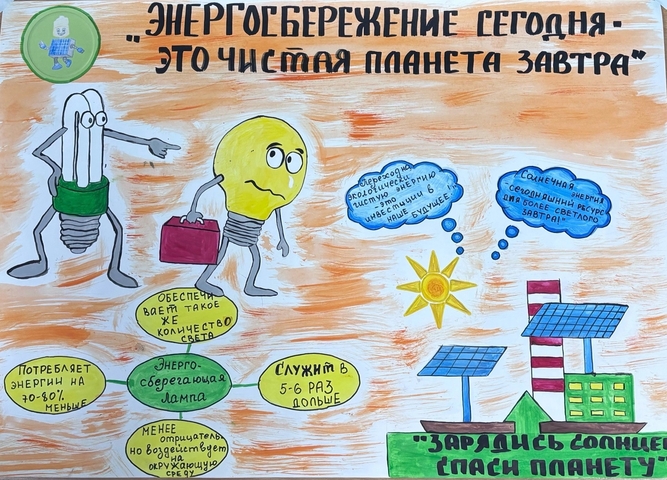 „ЭНЕРГОСБЕРЕЖЕНИЕ СЕГОДНЯ-
ЭТО ЧИСТАЯ ПЛАНЕТА ЗАВТРА“
Переход на
экологически
чистую энергию
-это
инвестиции в
наше будущее!"
Солнечная энергия
"сегодняшний ресурс
для более светлого
завтра!"
ОБЕСПЕЧИ
ВАЕТ ТАКОЕ
ЖЕ
КОЛИЧЕСТВО
СВЕТА
ПОТРЕБЛЯЕТ
ЭНЕРГИИ НА
70-80%
МЕНЬШЕ
Энерго-
сберегающая
Лампа
Служит в
5-6 РАЗ
ДОЛЬШЕ
МЕНЕЕ
отрицатель
но воздействует
НА
ОКРУЖАЮЩУЮ
СРЕДУ
"ЗАРЯДИСЬ СОЛНЦЕ
СПАСИ ПЛАНЕТУ"